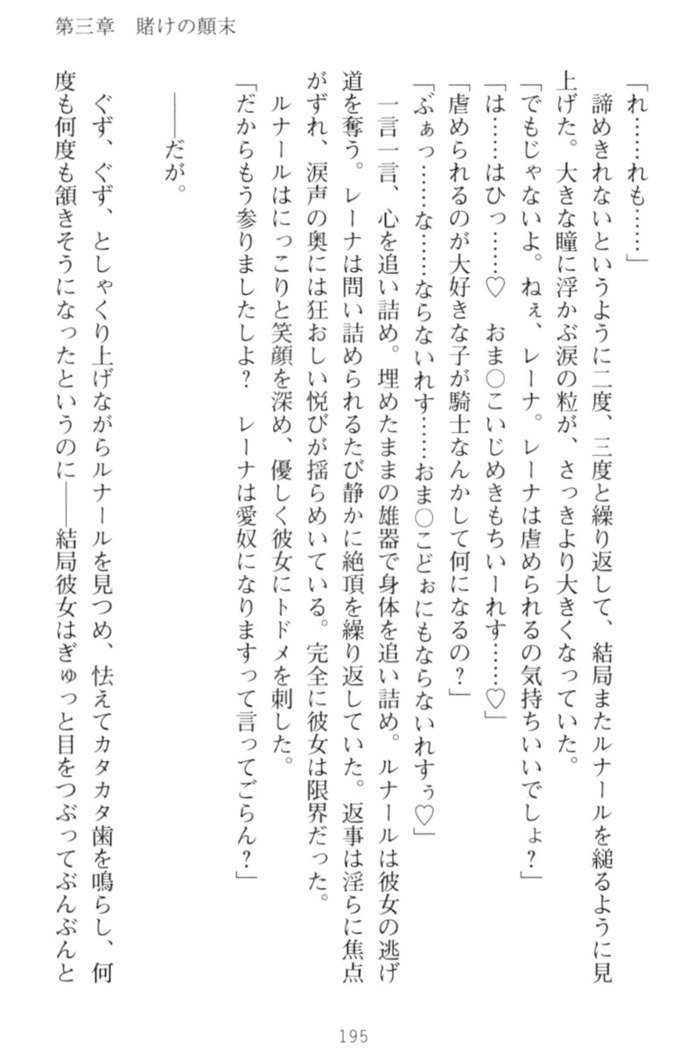 第三章　賭けの顛末
「れ……れも……」
　諦めきれないというように二度、三度と繰り返して、結局またルナールを縋るように見
上げた。大きな瞳に浮かぶ涙の粒が、さっきより大きくなっていた。
「でもじゃないよ。ねぇ、レーナ。レーナは虐められるの気持ちいいでしょ？」
「は……はひっ……♡　おま〇こいじめきもちいーれす……♡」
「虐められるのが大好きな子が騎士なんかして何になるの？」
「ぶぁっ……な……ならないれす……おま〇こどぉにもならないれすぅ♡」
　一言一言、心を追い詰め。埋めたままの雄器で身体を追い詰め。ルナールは彼女の逃げ
道を奪う。レーナは問い詰められるたび静かに絶頂を繰り返していた。返事は淫らに焦点
がずれ、涙声の奥には狂おしい悦びが揺らめいている。完全に彼女は限界だった。
　ルナールはにっこりと笑顔を深め、優しく彼女にトドメを刺した。
「だからもう参りましたしよ？　レーナは愛奴になりますって言ってごらん？」
　――だが。
　ぐず、ぐず、としゃくり上げながらルナールを見つめ、怯えてカタカタ歯を鳴らし、何
度も何度も頷きそうになったというのに――結局彼女はぎゅっと目をつぶってぶんぶんと
195